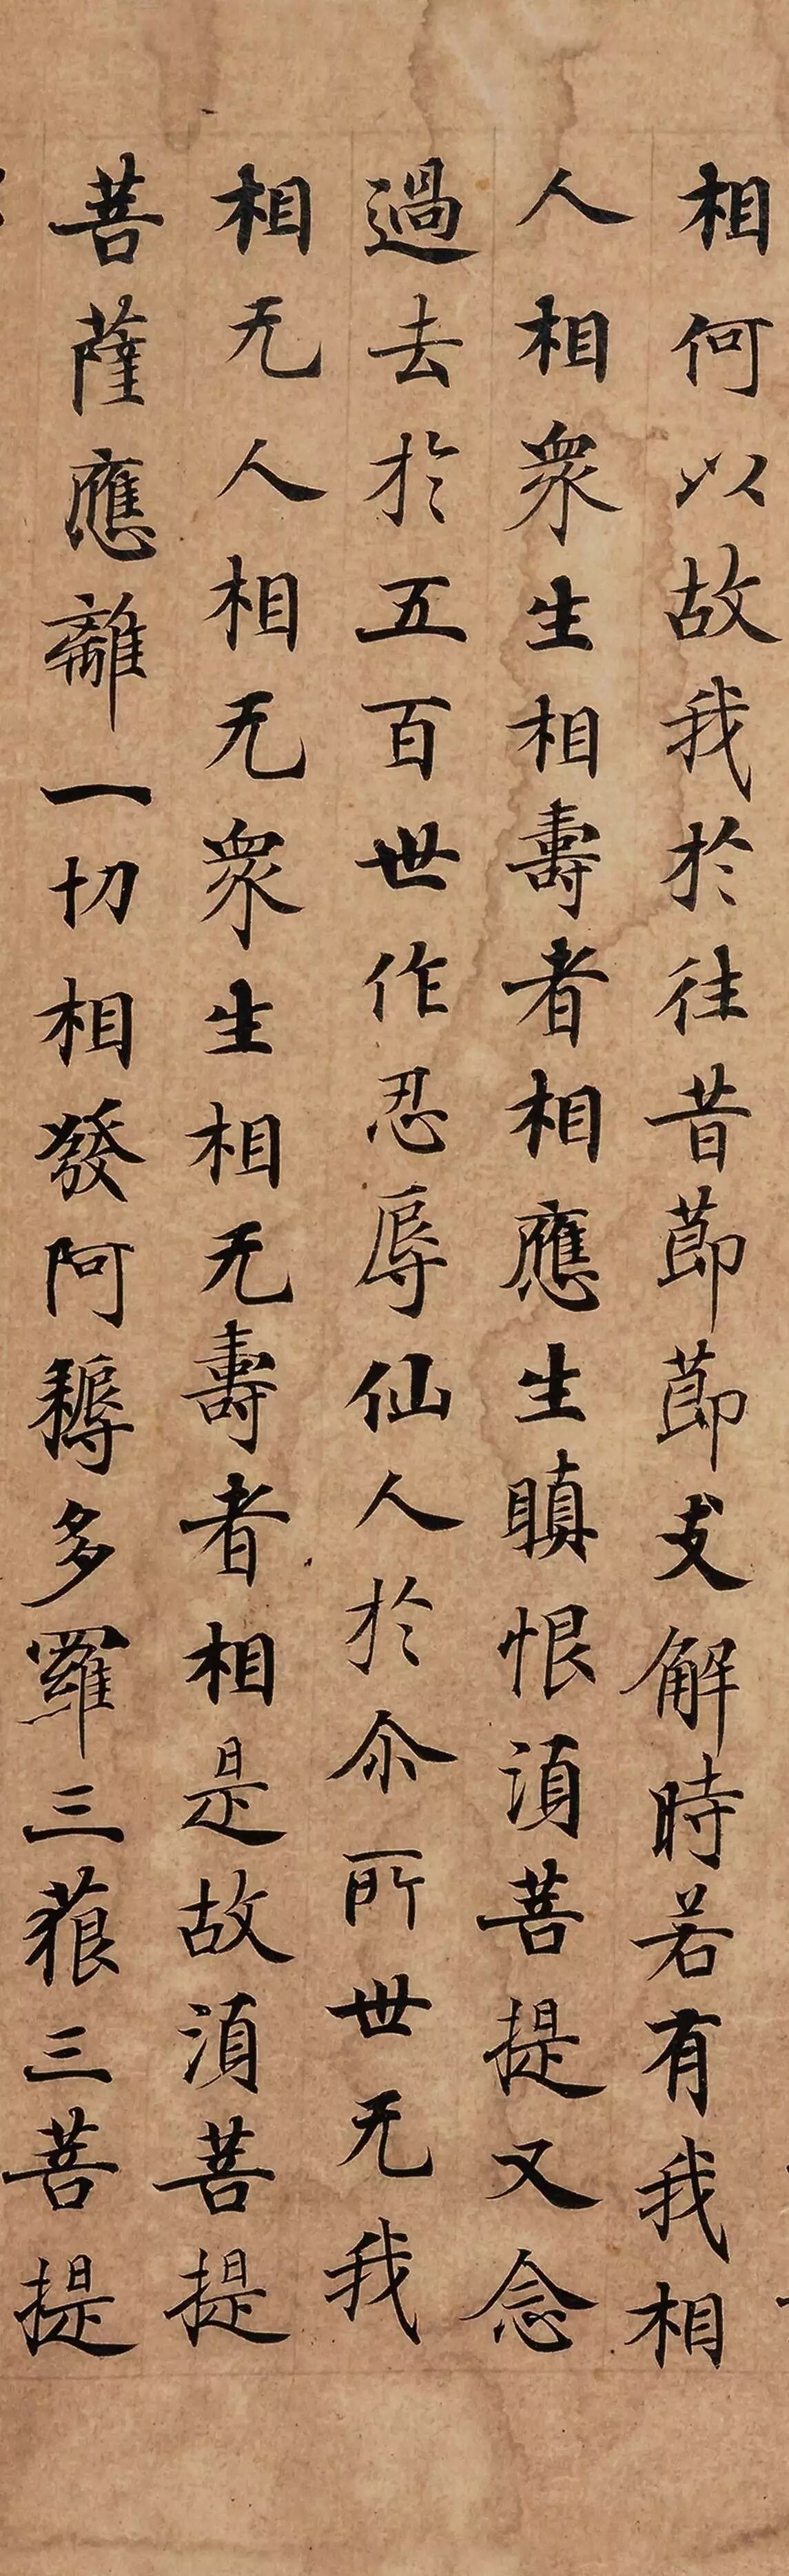 相何以故我於往昔莭莭支解時若有我相
人相衆生相壽者相應生瞋恨湏菩提又念
過去於五百世作忍辱仙人於尒所世无我
相无人相无衆生相无壽者相是故湏菩提
菩薩應離一切相發阿耨多羅三藐三菩提